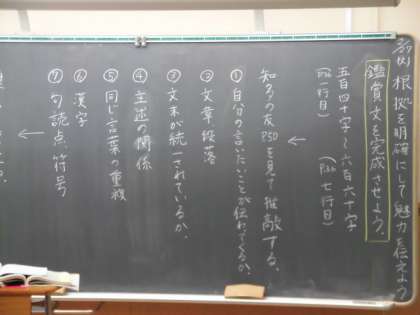 根拠を明確にして魅力を伝えよう
鑑賞文を完成させよう。
五百四十字〜六百六十字
七行目)
知る友 P50を見て推敲する。
①自分の言いたいことが伝わってくるか。
②文章・段落
③文末が統一されているか。
④主述の関係
⑤同じ言葉の重複
⑥漢字
⑦句読点、符号